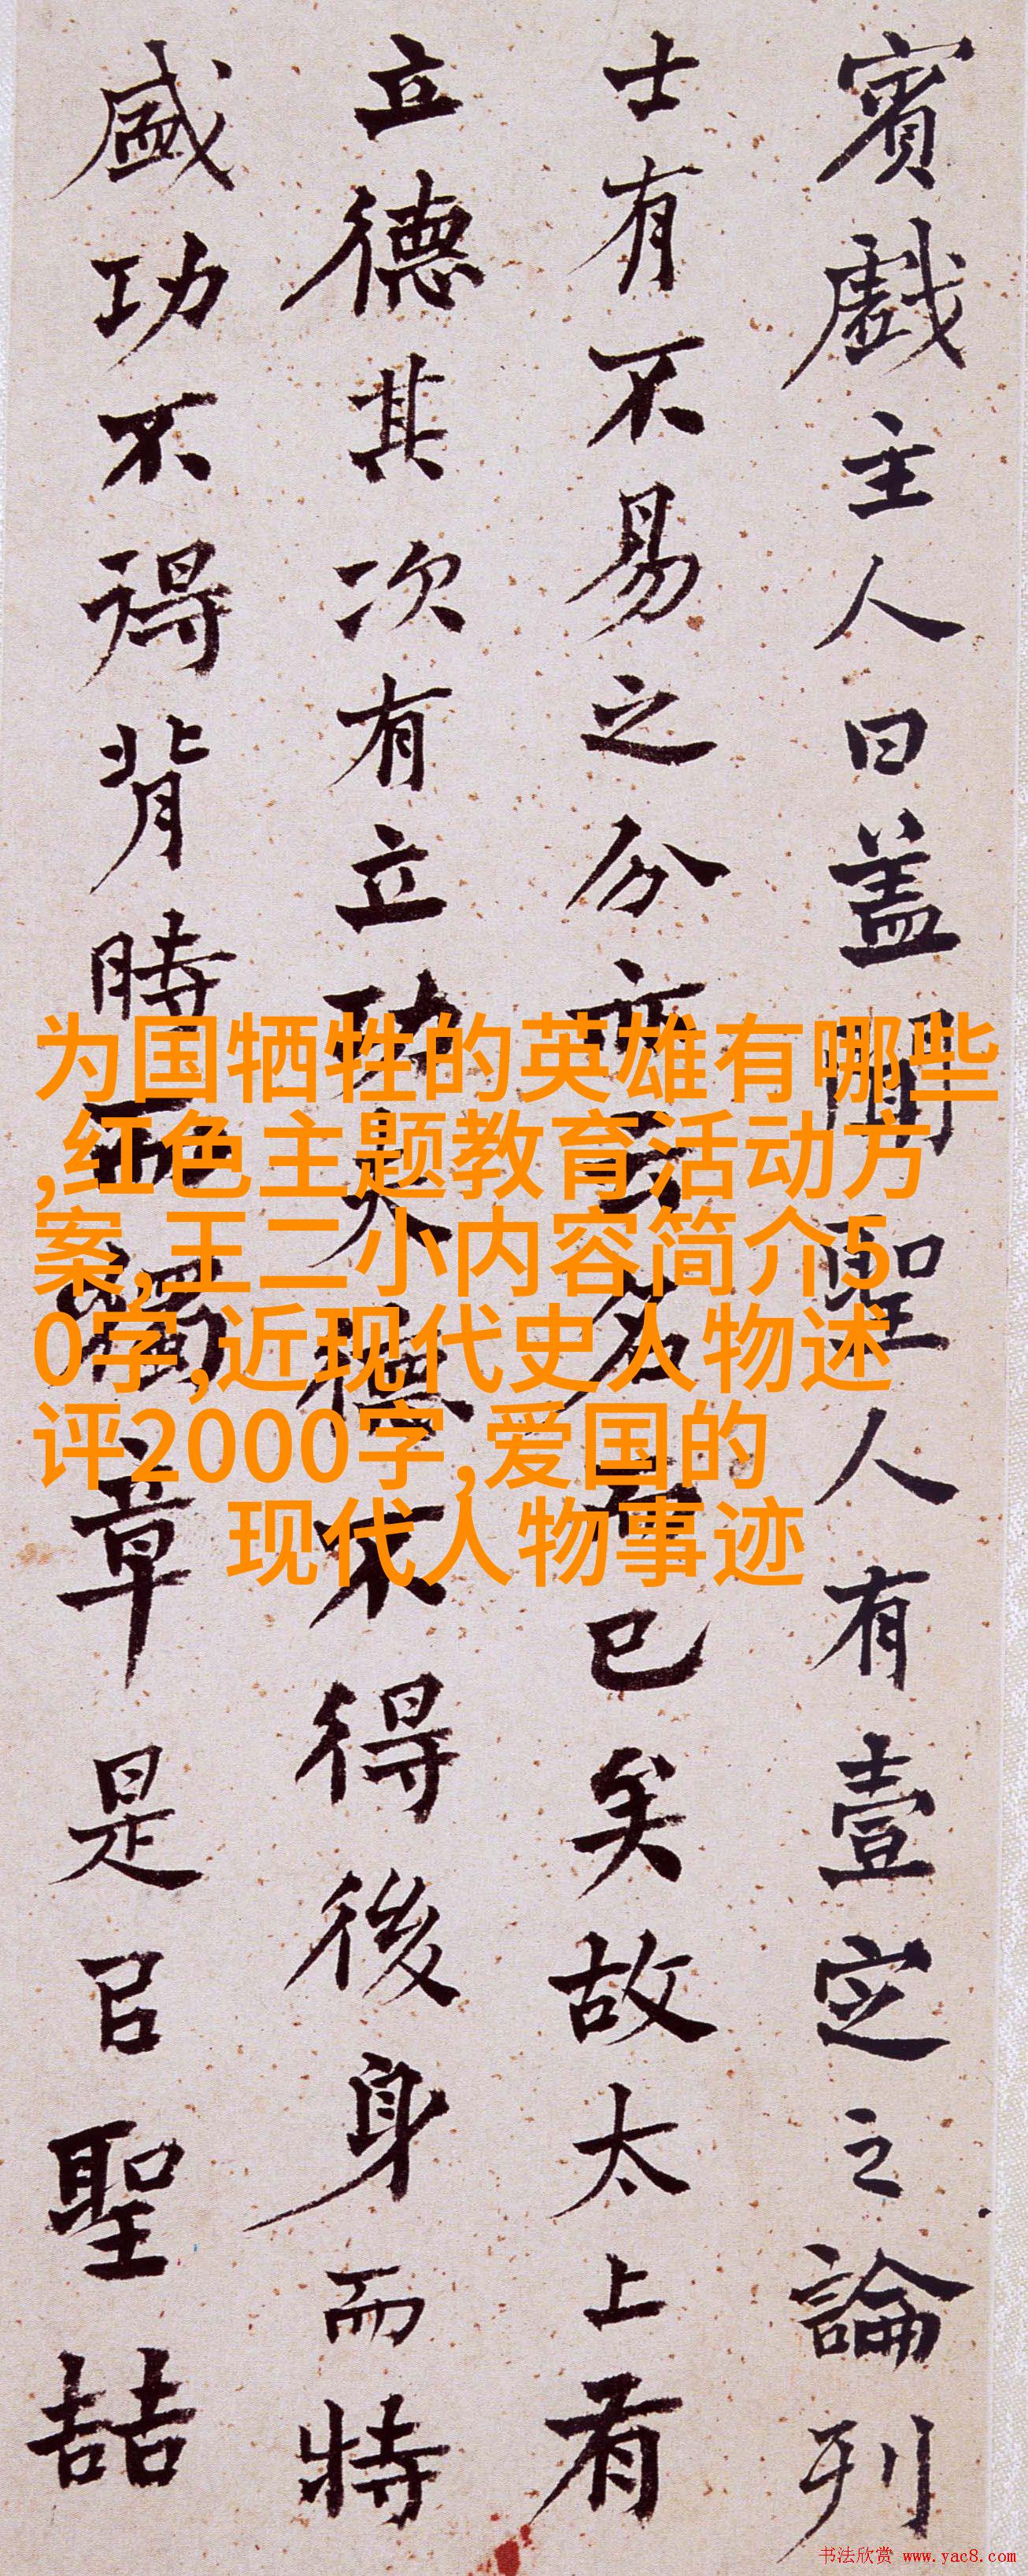 賓戲主人曰盖聞聖人有壹定之論列
士有不易之分亦云名而已矣故太上有
立德其次有立功夫德不得後身而特
盛功不得背時而獨章是㠯聖喆
为国牺牲的英雄有哪些
,红色主题教育活动方
案,王二小内容简介5
0字,近现代史人物述
评2000字,爱国的
现代人物事迹
书法欣赏 www.yac8.com